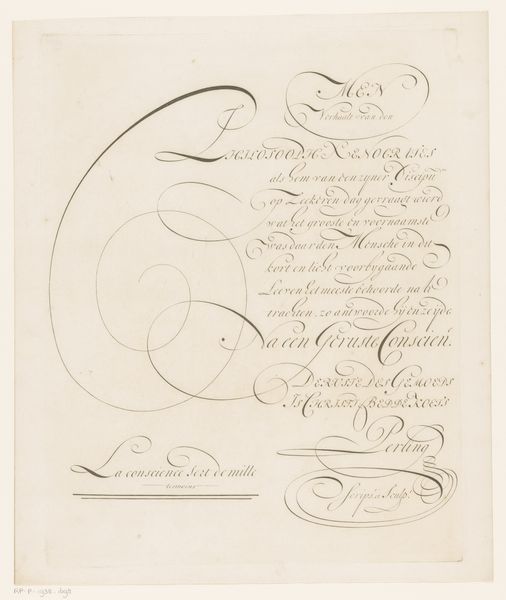 MEN
Verhaalt van den
PHILOSOOPH XENOCRATES
als hem van den zyner Discipu
op Zeekeren dag gevraagt wierd
wat het grootste en voornaamste
was daar den Mensche in dit
kort en licht voorbygaande
Leeven het meeste behoorde na te
trachten, zo antwoorde hy en zeyde
Na een Geruste Conscien.
DE RUSTE DES GEMOEDS
IS CHRISTI BEDDE KOETS
Perling
Scrips. a Sculp.
La conscience sert de mille
temoins